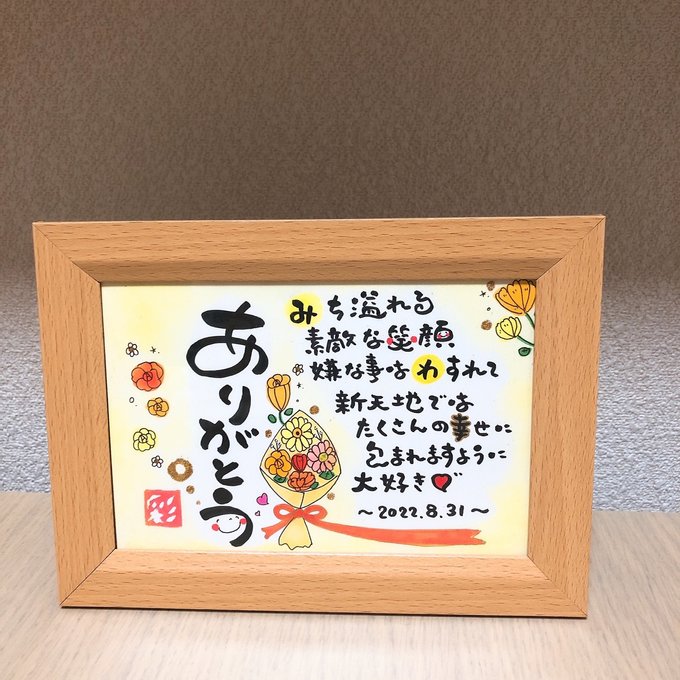 ありがとう
みち溢れる
素敵な笑顔
嫌な事はわすれて
新天地では
たくさんの幸せに
包まれますように
大好き♥
～2022.8.31～
彩